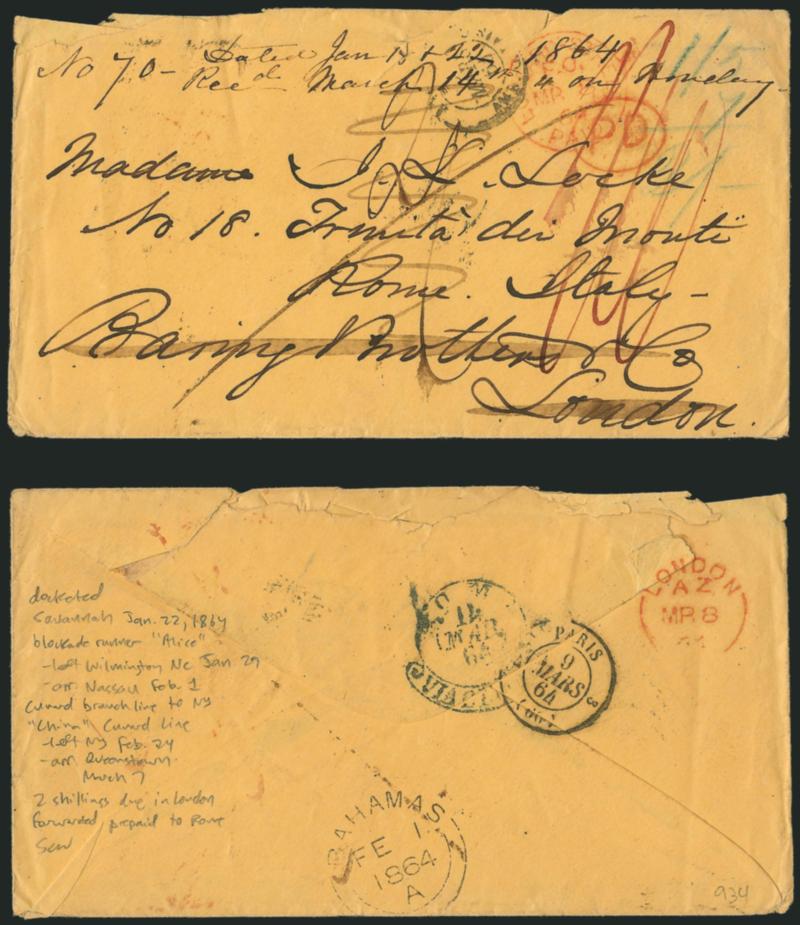 No 70 - Dated Jan 15 + 22nd 1864
Recd March 14th " on Monday -
PAID
PD
Madame J. L. Locke
No 18. Trinità dei Monti
Rome. Italy -
Baring Brothers & Co
London.
docketed
Savannah Jan. 22, 1864
blockade runner "Alice"
- left Wilmington NC Jan 29
- arr. Nassau Feb. 1
Cunard branch line to NY
"China" Cunard Line
- left NY Feb. 24
- arr. Queenstown
March 7
2 shillings due in London
forwarded prepaid to Rome
LONDON
AZ
MR 8
ROMA
14
MAR
64
PARIS
9
MARS
64
(60)
BAHAMAS
FE 1
1864
A
934